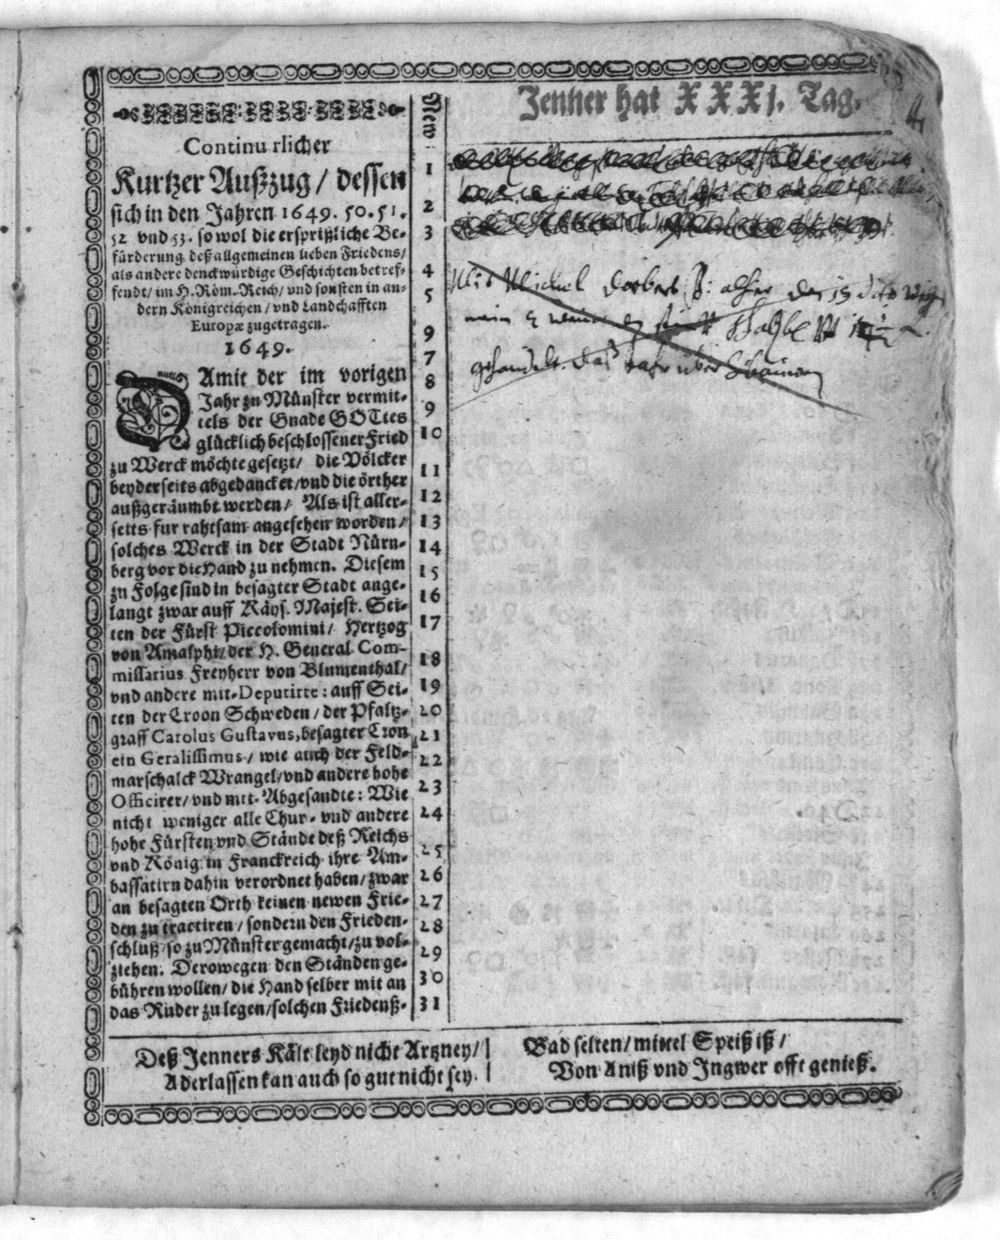 Continuirlicher
Kurtzer Außzug / dessen
sich in den Jahren 1649. 50. 51.
52 vnd 53. so wol die ersprißliche Be-
fürderung deß allgemeinen lieben Friedens /
als andere denckwürdige Geschichten betref-
fendt / im H. Röm. Reich / vnd sonsten in an-
dern Königreichen / vnd Landschafften
Europæ zugetragen.
1649.
DAmit der im vorigen
Jahr zu Münster vermit-
tels der Gnade GOTtes
glücklich beschlossener Fried
zu Werck möchte gesetzt / die Völcker
beyderseits abgedancket / vnd die örther
außgeräumbt werden / Als ist aller-
seits fur rahtsam angesehen worden /
solches Werck in der Stadt Nürn-
berg vor die Hand zu nehmen. Diesem
zu Folge sind in besagter Stadt ange-
langt zwar auff Käys. Majest. Sei-
ten der Fürst Piccolomini / Hertzog
von Amalphi / der H. General Com-
missarius Freyherr von Blumenthal /
vnd andere mit-Deputirte: auff Sei-
ten der Croon Schweden / der Pfaltz-
graff Carolus Gustavus, besagter Cron
ein Geralissimus / wie auch der Feld-
marschalck Wrangel / vnd andere hohe
Officirer / vnd mit-Abgesandte: Wie
nicht weniger alle Chur- vnd andere
hohe Fürsten vnd Stände deß Reichs
vnd König in Franckreich ihre Am-
bassatirn dahin verordnet haben / zwar
an besagten Orth keinen newen Frie-
den zu tractiren / sondern den Frieden-
schluß / so zu Münster gemacht / zu vol-
ziehen. Derowegen den Ständen ge-
bühren wollen / die Hand selber mit an
das Ruder zu legen / solchen Friedenß-
New
1
2
3
4
5
9
7
8
9
10
11
12
13
14
15
16
17
18
19
20
21
22
23
24
25
26
27
28
29
30
31
Jenner hat XXXj. Tag.
Deß Jenners Kält leyd nicht Artzney /
Aderlassen kan auch so gut nicht sey.
Bad selten / mittel Speiß iß /
Von Aniß vnd Jngwer offt genieß.